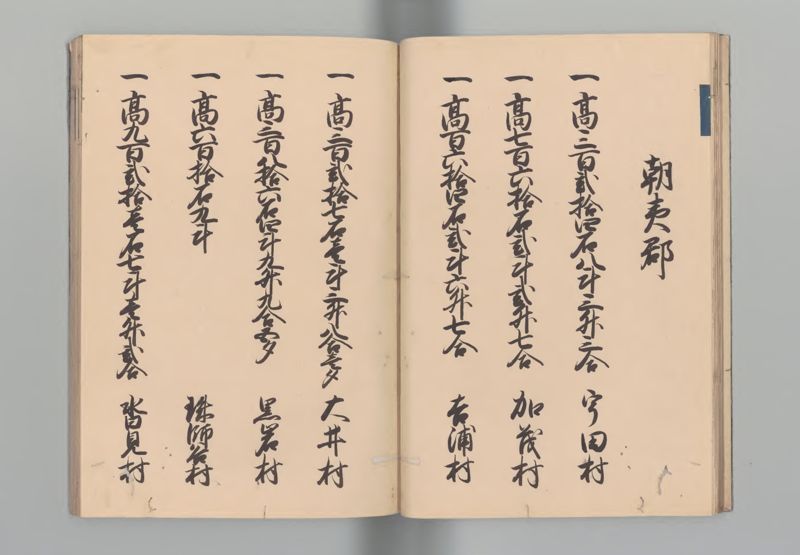 朝夷郡
一 高三百弐拾四石八斗三升二合 宇田村
一 高七百六拾石弐斗弐升七合 加茂村
一 高百六拾四石弐斗六升七合 吉浦村
一 高三百弐拾七石壱斗三升八合 大井村
一 高三百八拾六石四斗九升九合 黒岩村
一 高六百拾石九斗 珠師谷村
一 高九百弐拾壱石七斗壱升弐合 沓見村